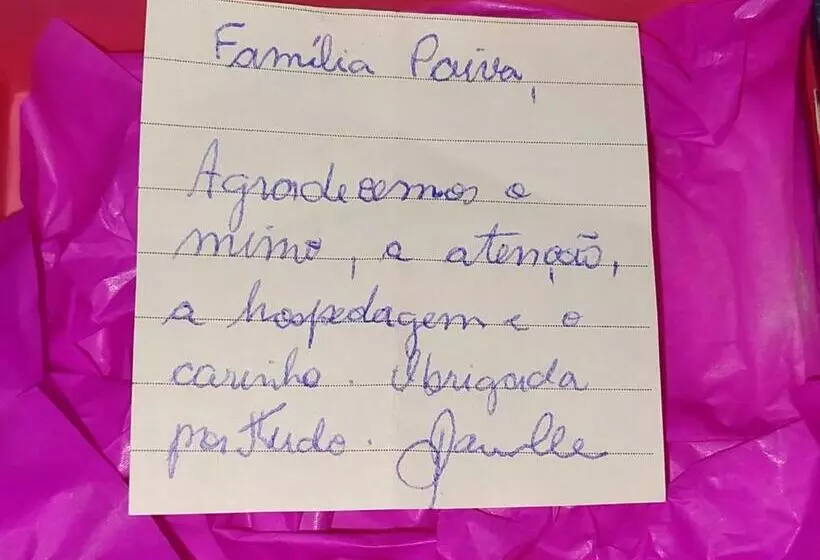 Família Paiva,
Agradecemos o
mimo, a atenção,
a hospedagem e o
carinho. Obrigada
por tudo.